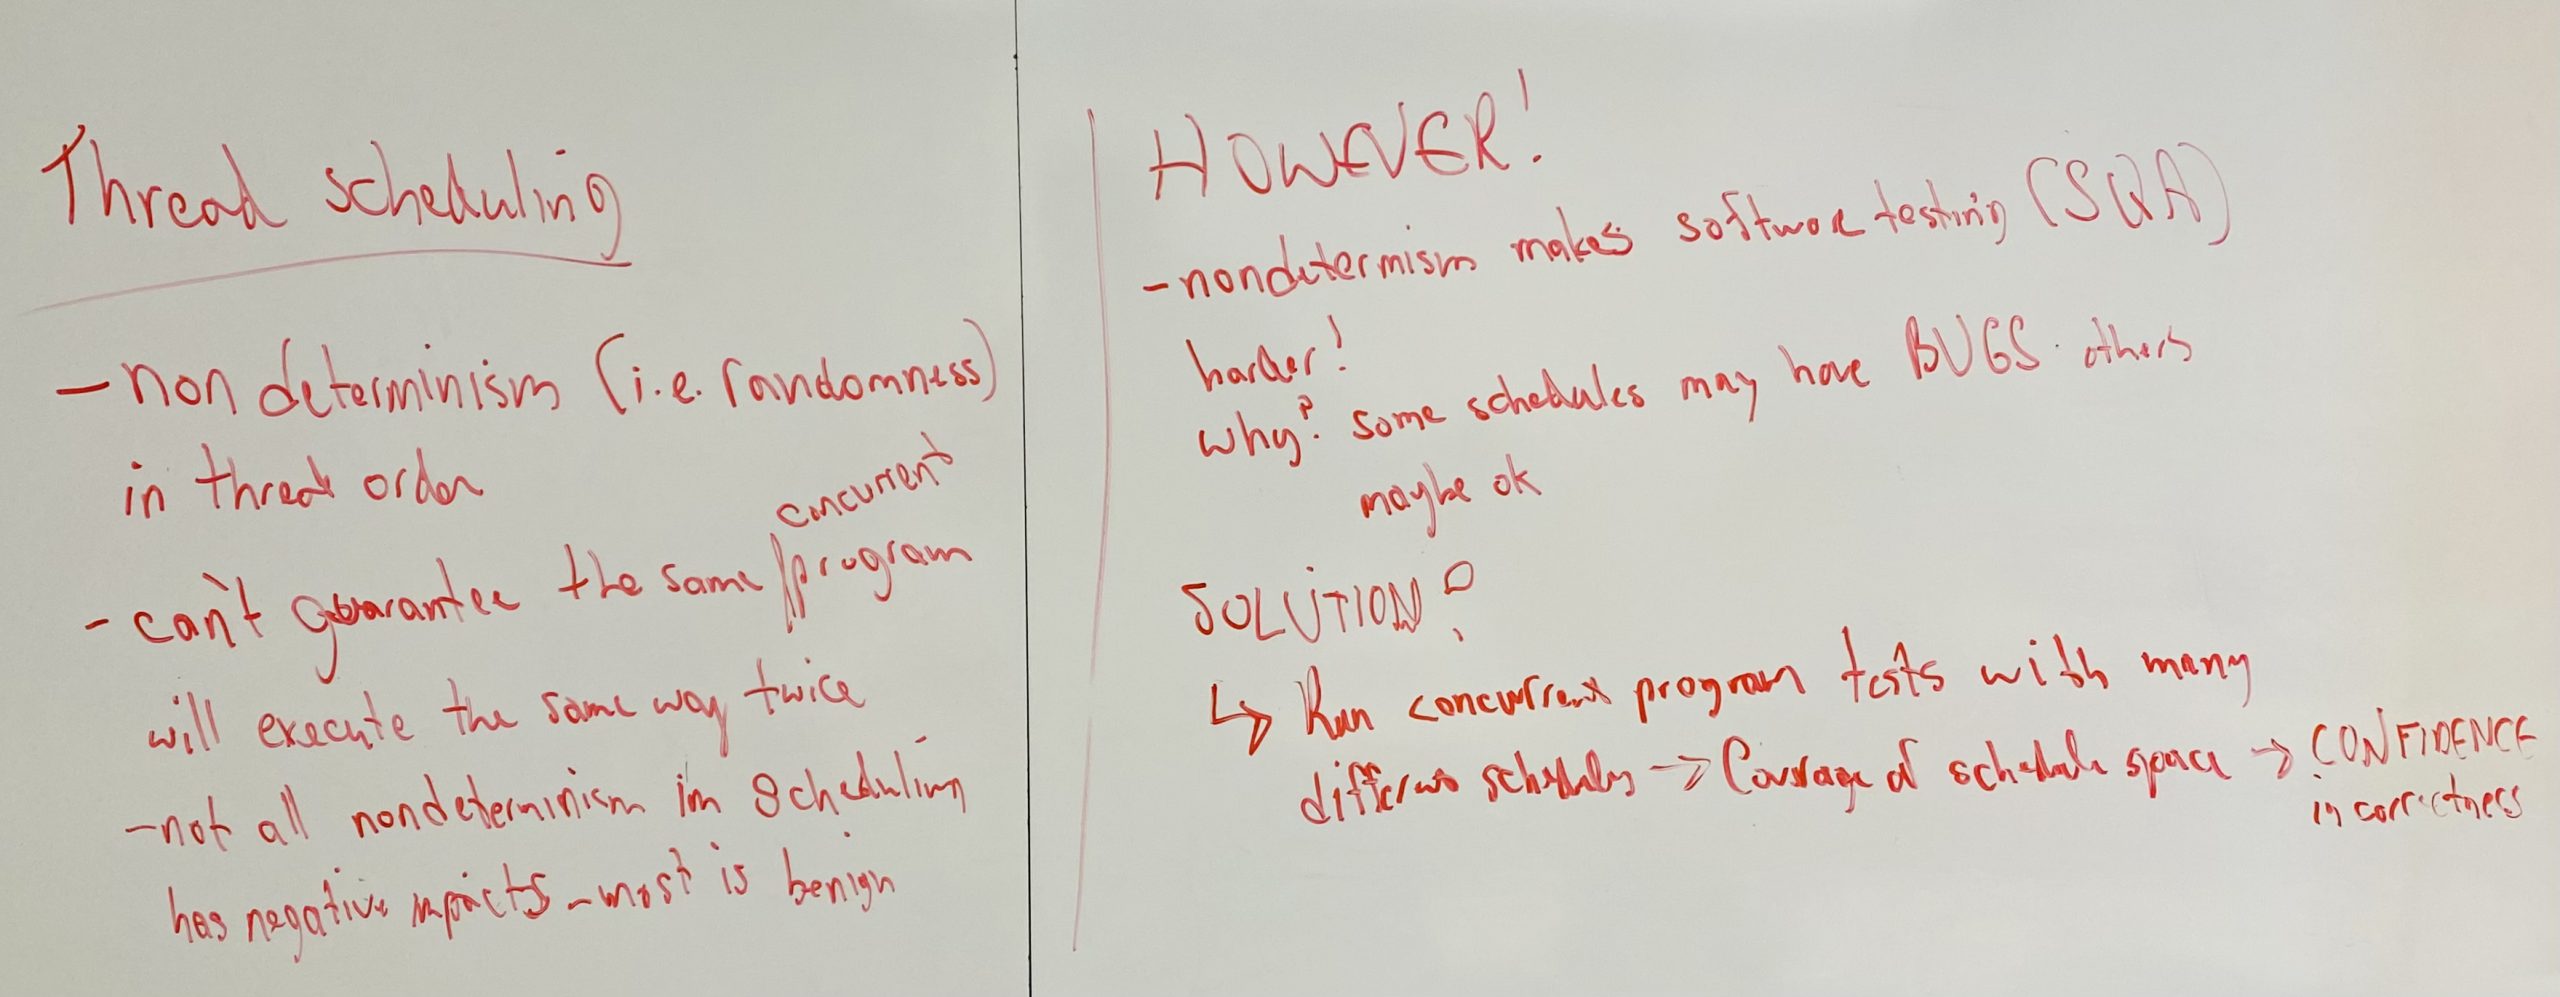 Thread scheduling
- non determinism (i.e. randomness)
in thread order
concurrent
- can't guarantee the same program
will execute the same way twice
- not all nondeterminism in scheduling
has negative impacts - most is benign
HOWEVER!
- nondetermism makes software testing (SQA)
harder!
why? some schedules may have BUGS. others
maybe ok
SOLUTION?
↳ Run concurrent program tests with many
different schedules → Coverage of schedule space → CONFIDENCE
in correctness